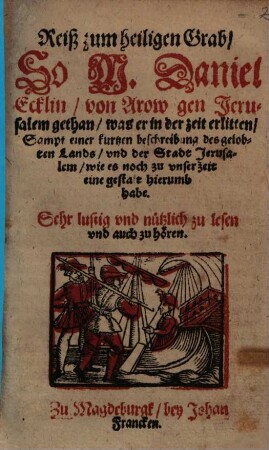 Reiß zum heiligen Grab/
So M. Daniel
Ecklin / von Arow gen Jeru-
salem gethan / was er in der zeit erlitten/
Sampt einer kurtzen beschreibung des gelob-
ten Lands / vnd der Stadt Jerusa-
lem / wie es noch zu vnser zeit
eine gestalt hierumb
habe.
Sehr lustig vnd nützlich zu lesen
vnd auch zu hören.
Zu Magdeburgk / bey Johan
Francken.